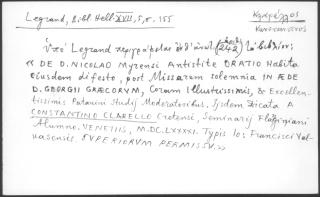 Legrand, Bibl Hell XVII, 5, σ. 155
Κων/νος
Ὑπὸ Legrand περιγράφεται (242) τὸ βιβλίον:
« DE D. NICOLAO Myrensi Antistite ORATIO Habita
eiusdem die festo, post Missarum solemnia IN ÆDE
D. GEORGII GRÆCORUM, Coram Illustrissimis, & Excellen-
tissimis Patavini Studij Moderatoribus. Ijsdem Dicata A
CONSTANTINO CLARELLO Cretensi, Seminarij Flāginiani
Alumno. VENETIIS, M.DC.LXXXXI. Typis Io: Francisci Val-
vasensis. SVPERIORVM PERMISSV. »